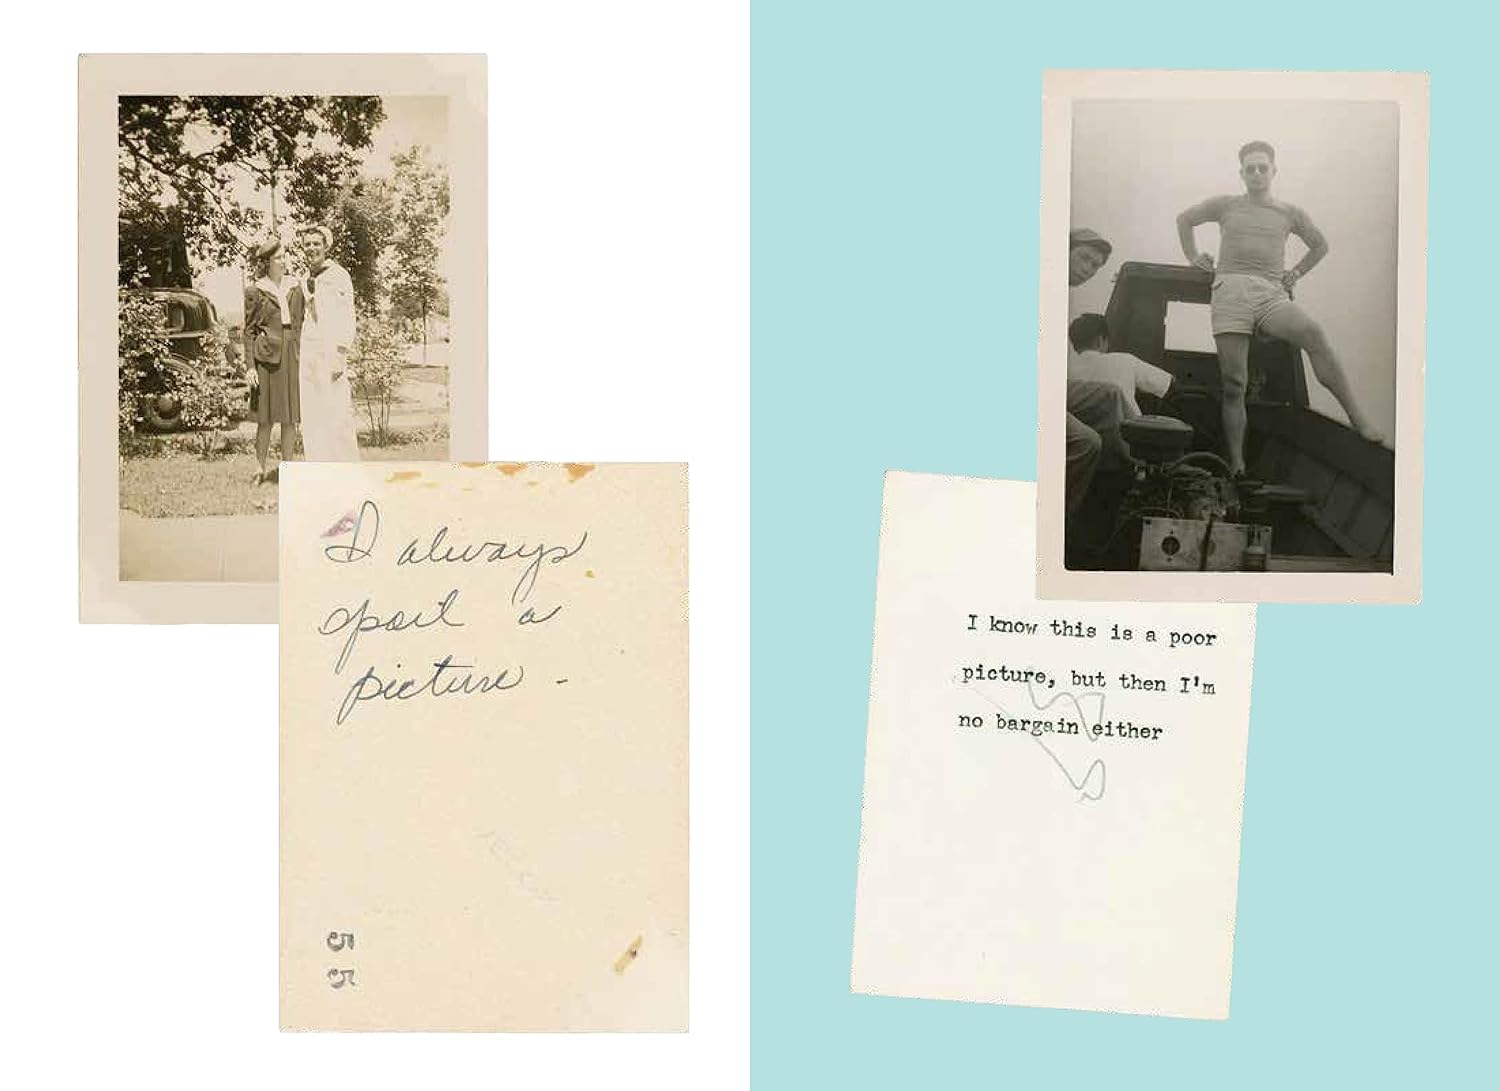 I always
spoil a
picture -
55
I know this is a poor
picture, but then I'm
no bargain either